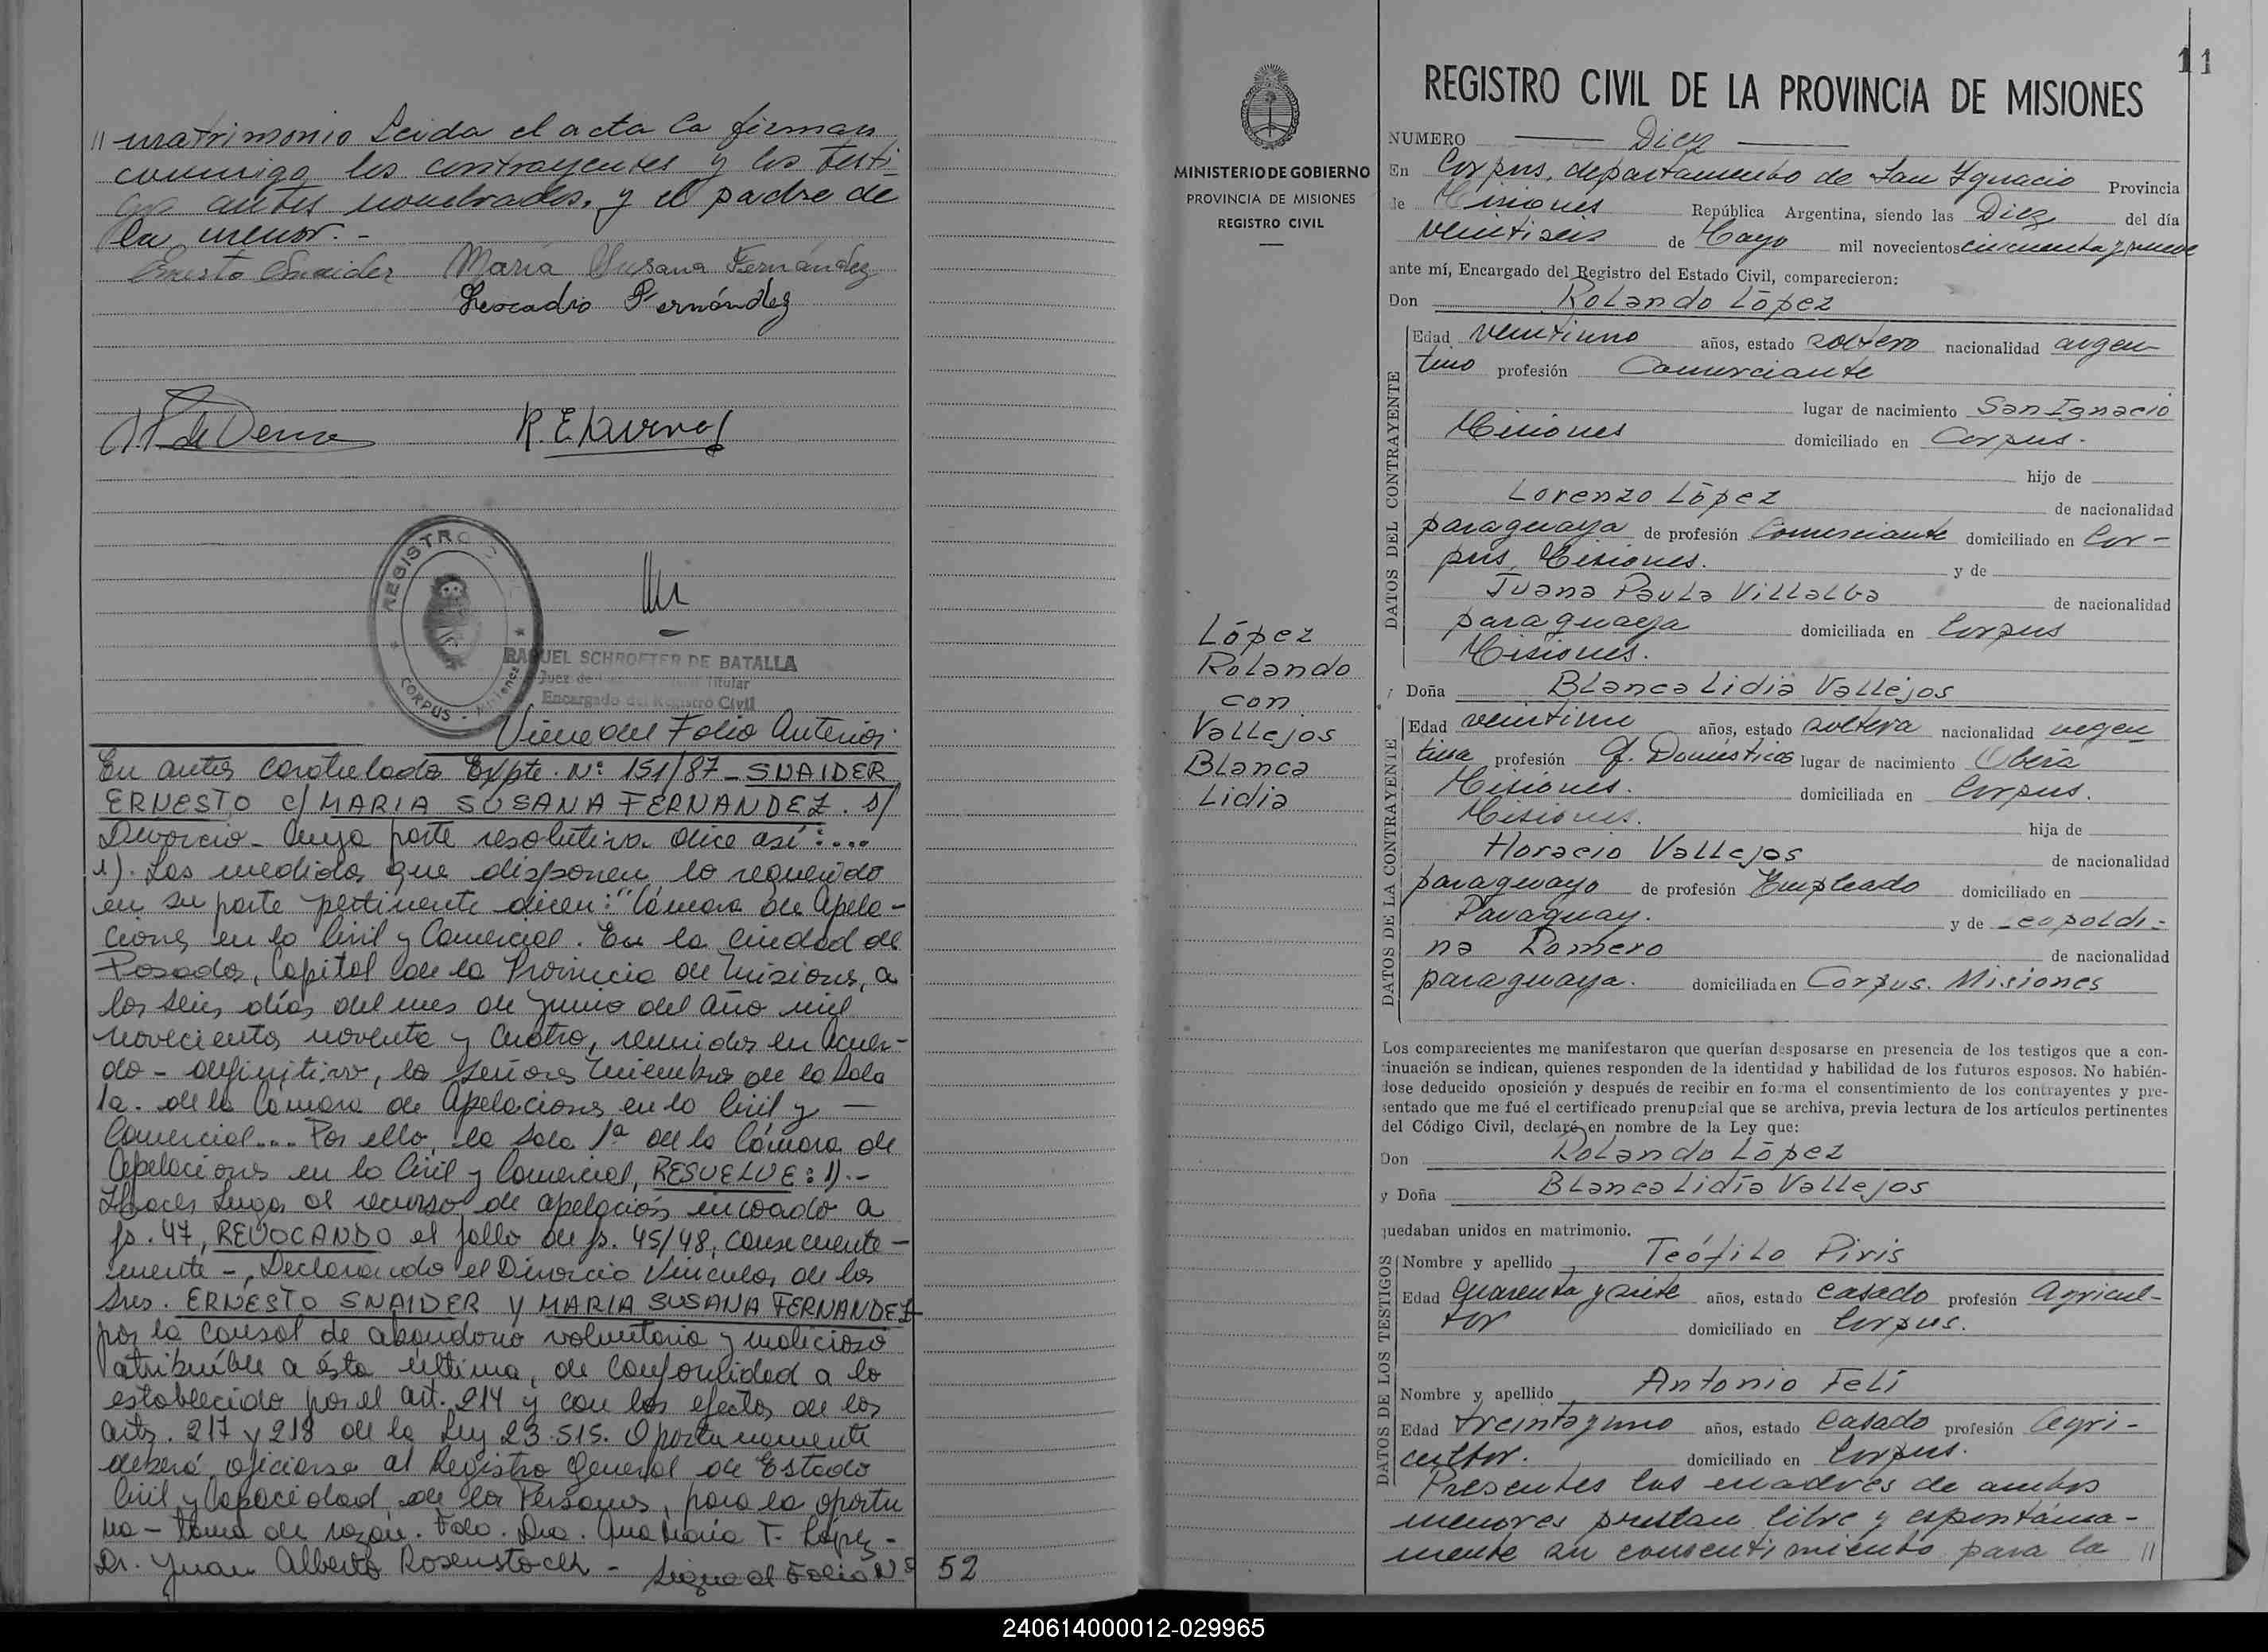 // matrimonio Leida el acta la firman
conmigo los contrayentes y los testi-
gos antes nombrados, y el padre de
la menor.-
Ernesto Snaider María Susana Fernández
Leocadio Fernández
REGISTRO
CORPUS - Misiones
RAQUEL SCHROFTER DE BATALLA
Juez de Titular
Encargado del Registro Civil
Viene del Folio Anterior.
En autos caratulados Expte. Nº 151/87 - SNAIDER
ERNESTO c/ MARIA SUSANA FERNANDEZ. s/
Divorcio - Cuya parte resolutiva dice así:....
1). Las medidas que disponen lo requerido
en su parte pertinente dicen: "Cámara de Apela-
ciones en lo Civil y Comercial. En la ciudad de
Posadas, Capital de la Provincia de Misiones, a
los seis días del mes de Junio del año mil
novecientos noventa y cuatro, reunidos en Acuer-
do - definitivo, los señores Miembros de la Sala
1a. de la Cámara de Apelaciones en lo Civil y —
Comercial... Por ello, la Sala 1ª de la Cámara de
Apelaciones en lo Civil y Comercial, RESUELVE: 1).-
Hacer Lugar al recurso de apelación incoado a
fs. 47, REVOCANDO el fallo de fs. 45/48, consecuente-
mente -, Declarando el Divorcio Vincular de los
Sres. ERNESTO SNAIDER Y MARIA SUSANA FERNANDEZ
por la causal de abandono voluntario y malicioso
atribuíble a ésta última, de conformidad a lo
establecido por el art. 214 y con los efectos de los
arts. 217 y 218 de la Ley 23.515. Oportunamente
deberá oficiarse al Registro General de Estado
Civil y Capacidad de las Personas, para la oportu
na - toma de razón. Fdo. Dra. Ana María T. López -
Dr. Juan Alberto Rosenstoch - Sigue al Folio Nº 52
MINISTERIO DE GOBIERNO
PROVINCIA DE MISIONES
REGISTRO CIVIL
López
Rolando
con
Vallejos
Blanca
Lidia
11
REGISTRO CIVIL DE LA PROVINCIA DE MISIONES
NUMERO Diez
En Corpus, departamento de San Ygnacio Provincia
de Misiones República Argentina, siendo las Diez del día
veintiseis de Mayo mil novecientos cincuenta y nueve
ante mí, Encargado del Registro del Estado Civil, comparecieron:
Don Rolando López
DATOS DEL CONTRAYENTE
Edad veintiuno años, estado soltero nacionalidad argen-
tino profesión Comerciante
lugar de nacimiento San Ignacio
Misiones domiciliado en Corpus.
hijo de
Lorenzo López de nacionalidad
paraguaya de profesión Comerciante domiciliado en Cor-
pus, Misiones. y de
Juana Paula Villalba de nacionalidad
paraguaya domiciliada en Corpus
Misiones.
y Doña Blanca Lidia Vallejos
DATOS DE LA CONTRAYENTE
Edad veintiun años, estado soltera nacionalidad argen
tina profesión Q. Domésticos lugar de nacimiento Oberá
Misiones. domiciliada en Corpus.
Misiones. hija de
Horacio Vallejos de nacionalidad
paraguayo de profesión Empleado domiciliado en
Paraguay. y de Leopoldi-
na Romero de nacionalidad
paraguaya. domiciliada en Corpus. Misiones
Los comparecientes me manifestaron que querían desposarse en presencia de los testigos que a con-
tinuación se indican, quienes responden de la identidad y habilidad de los futuros esposos. No habién-
dose deducido oposición y después de recibir en forma el consentimiento de los contrayentes y pre-
sentado que me fué el certificado prenupcial que se archiva, previa lectura de los artículos pertinentes
del Código Civil, declaré en nombre de la Ley que:
Don Rolando López
y Doña Blanca Lidia Vallejos
quedaban unidos en matrimonio.
DATOS DE LOS TESTIGOS
Nombre y apellido Teófilo Piris
Edad Cuarenta y siete años, estado casado profesión Agricul-
tor domiciliado en Corpus.
Nombre y apellido Antonio Feli
Edad treinta y uno años, estado casado profesión Agri-
cultor. domiciliado en Corpus.
Presentes las madres de ambos
menores prestan libre y espontánea-
mente su consentimiento para la //
240614000012-029965